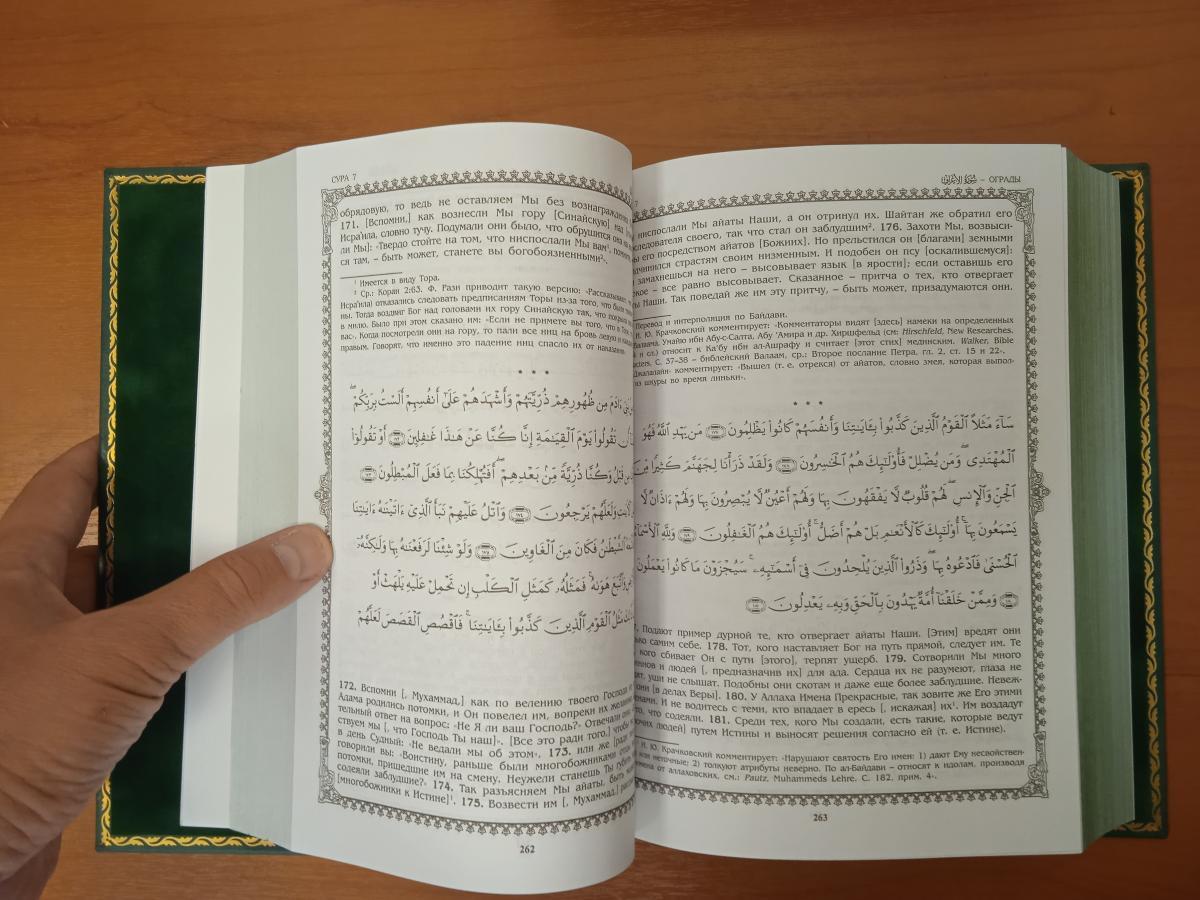 СУРА 7
обрядовую, то ведь не оставляем Мы без вознаграждения
171. [Вспомни,] как вознесли Мы гору [Синайскую] над
Исра'ила, словно тучу. Подумали они было, что обрушится она на
ли Мы]: «Твердо стойте на том, что ниспослали Мы вам¹,
ся там, – быть может, станете вы богобоязненными²».
¹ Имеется в виду Тора.
² Ср.: Коран 2:63. Ф. Рази приводит такую версию: «Рассказывают,
Исра'ила) отказались следовать предписаниям Торы из-за того, что были
ны. Тогда воздвиг Бог над головами их гору Синайскую так, что покрыла
в милю. Было при этом сказано им: «Если не примете вы того, что в
вас». Когда посмотрели они на гору, то пали все ниц на бровь левую и
правым. Говорят, что именно это падение ниц спасло их от наказания
* * *
ءَادَمَ مِن ظُهُورِهِمْ ذُرِّيَّتَهُمْ وَأَشْهَدَهُمْ عَلَىٰٓ أَنفُسِهِمْ أَلَسْتُ بِرَبِّكُمْ ۖ
تَقُولُوا۟ يَوْمَ ٱلْقِيَـٰمَةِ إِنَّا كُنَّا عَنْ هَـٰذَا غَـٰفِلِينَ ١٧٢ أَوْ تَقُولُوٓا۟
مِن قَبْلُ وَكُنَّا ذُرِّيَّةً مِّنۢ بَعْدِهِمْ ۖ أَفَتُهْلِكُنَا بِمَا فَعَلَ ٱلْمُبْطِلُونَ ١٧٣
وَلَعَلَّهُمْ يَرْجِعُونَ ١٧٤ وَٱتْلُ عَلَيْهِمْ نَبَأَ ٱلَّذِىٓ ءَاتَيْنَـٰهُ ءَايَـٰتِنَا
ٱلشَّيْطَـٰنُ فَكَانَ مِنَ ٱلْغَاوِينَ ١٧٥ وَلَوْ شِئْنَا لَرَفَعْنَـٰهُ بِهَا وَلَـٰكِنَّهُۥٓ
وَٱتَّبَعَ هَوَىٰهُ ۚ فَمَثَلُهُۥ كَمَثَلِ ٱلْكَلْبِ إِن تَحْمِلْ عَلَيْهِ يَلْهَثْ أَوْ
مَثَلُ ٱلْقَوْمِ ٱلَّذِينَ كَذَّبُوا۟ بِـَٔايَـٰتِنَا ۚ فَٱقْصُصِ ٱلْقَصَصَ لَعَلَّهُمْ
172. Вспомни [, Мухаммад,] как по велению твоего Господа
Адама родились потомки, и Он повелел им, вопреки их
тельный ответ на вопрос: «Не Я ли ваш Господь?» Отвечали
ствуем мы [, что Господь Ты наш]». [Все это ради того,] чтобы
в день Судный: «Не ведали мы об этом», 173. или же [ради
говорили вы: «Воистину, раньше были многобожниками отцы
потомки, пришедшие им на смену. Неужели станешь ты
содеяли заблудшие?» 174. Так разъясняем Мы айаты, быть
[многобожники к Истине]¹. 175. Возвести им [, Мухаммад,]
262
سُورَةُ الأَعْرَافِ – ОГРАДЫ
ниспослали Мы айаты Наши, а он отринул их. Шайтан же обратил его
последователя своего, так что стал он заблудшим². 176. Захоти Мы, возвыси-
его посредством айатов [Божиих]. Но прельстился он [благами] земными
страстям своим низменным. И подобен он псу [оскалившемуся]:
замахнешься на него – высовывает язык [в ярости]; если оставишь его
– все равно высовывает. Сказанное – притча о тех, кто отвергает
Наши. Так поведай же им эту притчу, – быть может, призадумаются они.
Перевод и интерполяция по Байдави.
И. Ю. Крачковский комментирует: «Комментаторы видят [здесь] намеки на определенных
Валаама, Умайю ибн Абу-с-Салта, Абу 'Амира и др. Хиршфельд (см: Hirschfeld, New Researches.
и сл.) относит к Ка'бу ибн ал-Ашрафу и считает [этот стих] мединским. Walker, Bible
С. 37–38 – библейский Валаам, ср.: Второе послание Петра, гл. 2, ст. 15 и 22».
Джалалайн комментирует: «Вышел (т. е. отрекся) от айатов, словно змея, которая выпол-
из шкуры во время линьки».
* * *
سَآءَ مَثَلًا ٱلْقَوْمُ ٱلَّذِينَ كَذَّبُوا۟ بِـَٔايَـٰتِنَا وَأَنفُسَهُمْ كَانُوا۟ يَظْلِمُونَ ١٧٧ مَن يَهْدِ ٱللَّهُ فَهُوَ
ٱلْمُهْتَدِى ۖ وَمَن يُضْلِلْ فَأُو۟لَـٰٓئِكَ هُمُ ٱلْخَـٰسِرُونَ ١٧٨ وَلَقَدْ ذَرَأْنَا لِجَهَنَّمَ كَثِيرًا مِّنَ
ٱلْجِنِّ وَٱلْإِنسِ ۖ لَهُمْ قُلُوبٌ لَّا يَفْقَهُونَ بِهَا وَلَهُمْ أَعْيُنٌ لَّا يُبْصِرُونَ بِهَا وَلَهُمْ ءَاذَانٌ لَّا
يَسْمَعُونَ بِهَآ ۚ أُو۟لَـٰٓئِكَ كَٱلْأَنْعَـٰمِ بَلْ هُمْ أَضَلُّ ۚ أُو۟لَـٰٓئِكَ هُمُ ٱلْغَـٰفِلُونَ ١٧٩ وَلِلَّهِ ٱلْأَسْمَآءُ
ٱلْحُسْنَىٰ فَٱدْعُوهُ بِهَا ۖ وَذَرُوا۟ ٱلَّذِينَ يُلْحِدُونَ فِىٓ أَسْمَـٰٓئِهِۦ ۚ سَيُجْزَوْنَ مَا كَانُوا۟ يَعْمَلُونَ
١٨٠ وَمِمَّنْ خَلَقْنَآ أُمَّةٌ يَهْدُونَ بِٱلْحَقِّ وَبِهِۦ يَعْدِلُونَ ١٨١
Подают пример дурной те, кто отвергает айаты Наши. [Этим] вредят они
самим себе. 178. Тот, кого наставляет Бог на путь прямой, следует им. Те
кого сбивает Он с пути [этого], терпят ущерб. 179. Сотворили Мы много
и людей [, предназначив их] для ада. Сердца их не разумеют, глаза не
уши не слышат. Подобны они скотам и даже еще более заблудшие. Невеж-
они [в делах Веры]. 180. У Аллаха Имена Прекрасные, так зовите же Его этими
И не водитесь с теми, кто впадает в ересь [, искажая] их¹. Им воздадут
то, что содеяли. 181. Среди тех, кого Мы создали, есть такие, которые ведут
людей] путем Истины и выносят решения согласно ей (т. е. Истине).
И. Ю. Крачковский комментирует: «Нарушают святость Его имен: 1) дают Ему несвойствен-
или неточные; 2) толкуют атрибуты неверно. По ал-Байдави – относят к идолам, производя
имена от аллаховских, см.: Pautz, Muhammeds Lehre. С. 182, прим. 4».
263